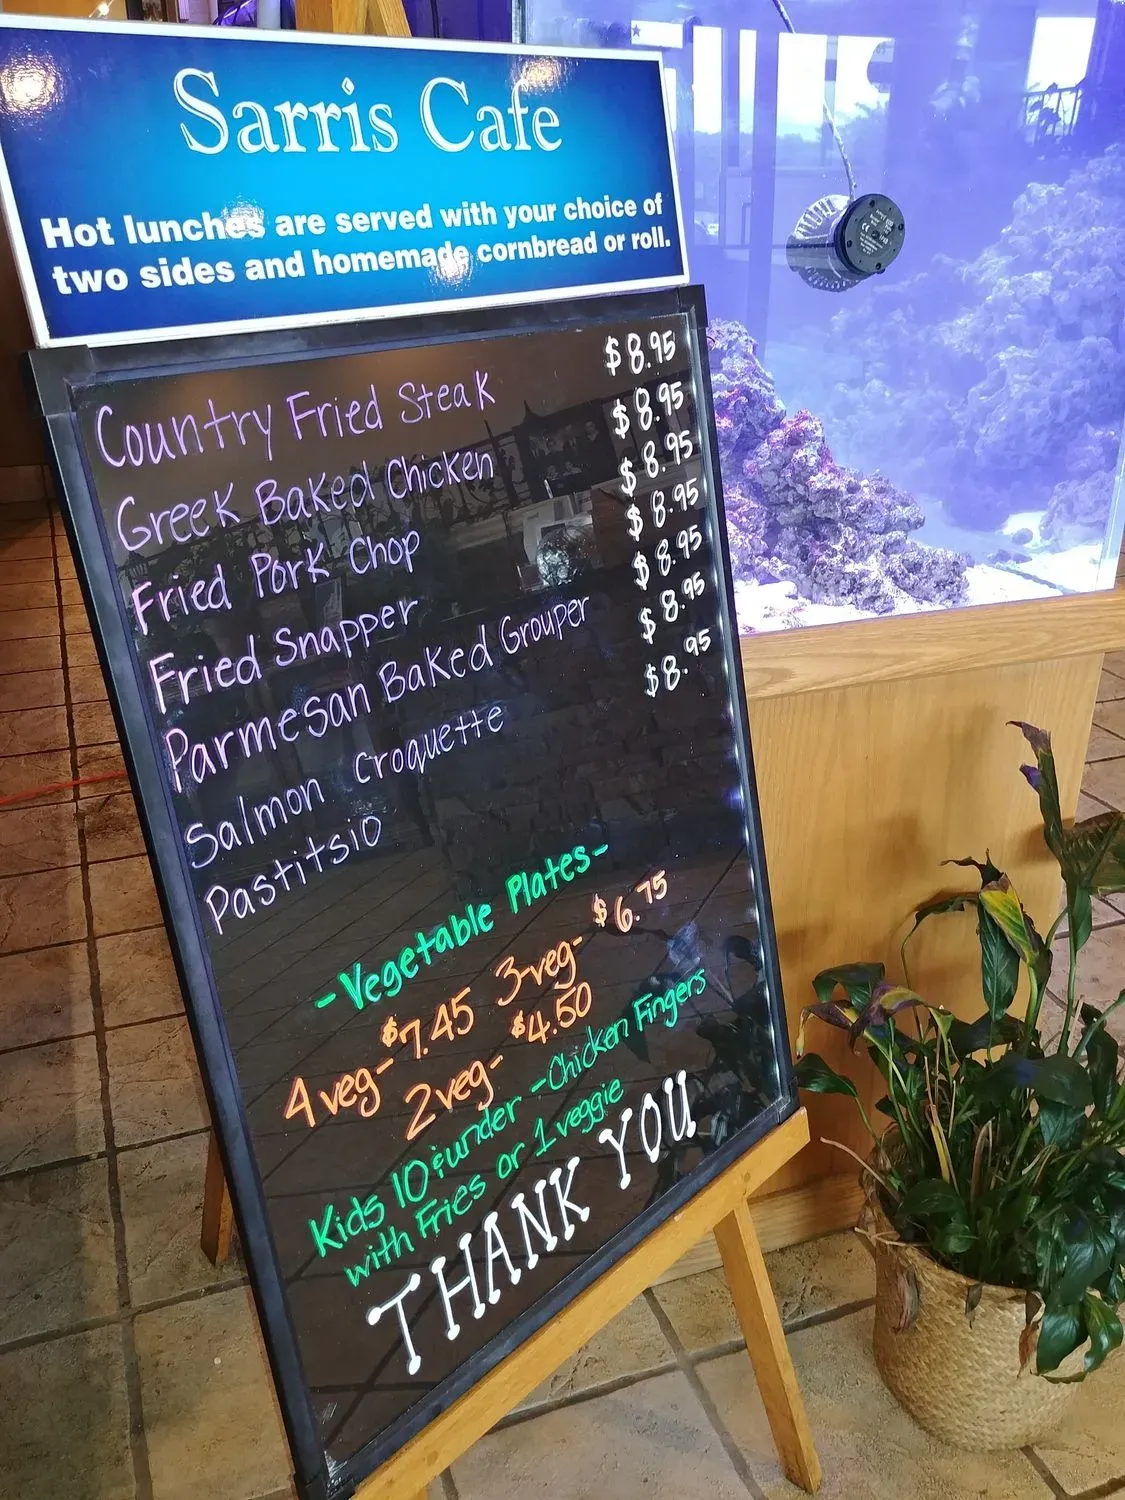 Sarris Cafe
Hot lunches are served with your choice of
two sides and homemade cornbread or roll.
Country Fried Steak $8.95
Greek Baked Chicken $8.95
Fried Pork Chop $8.95
Fried Snapper $8.95
Parmesan Baked Grouper $8.95
Salmon Croquette $8.95
Pastitsio $8.95
-Vegetable Plates-
4veg- $7.45 3veg- $6.75
2veg- $4.50
Kids 10 & under - Chicken Fingers
with Fries or 1 veggie
THANK YOU